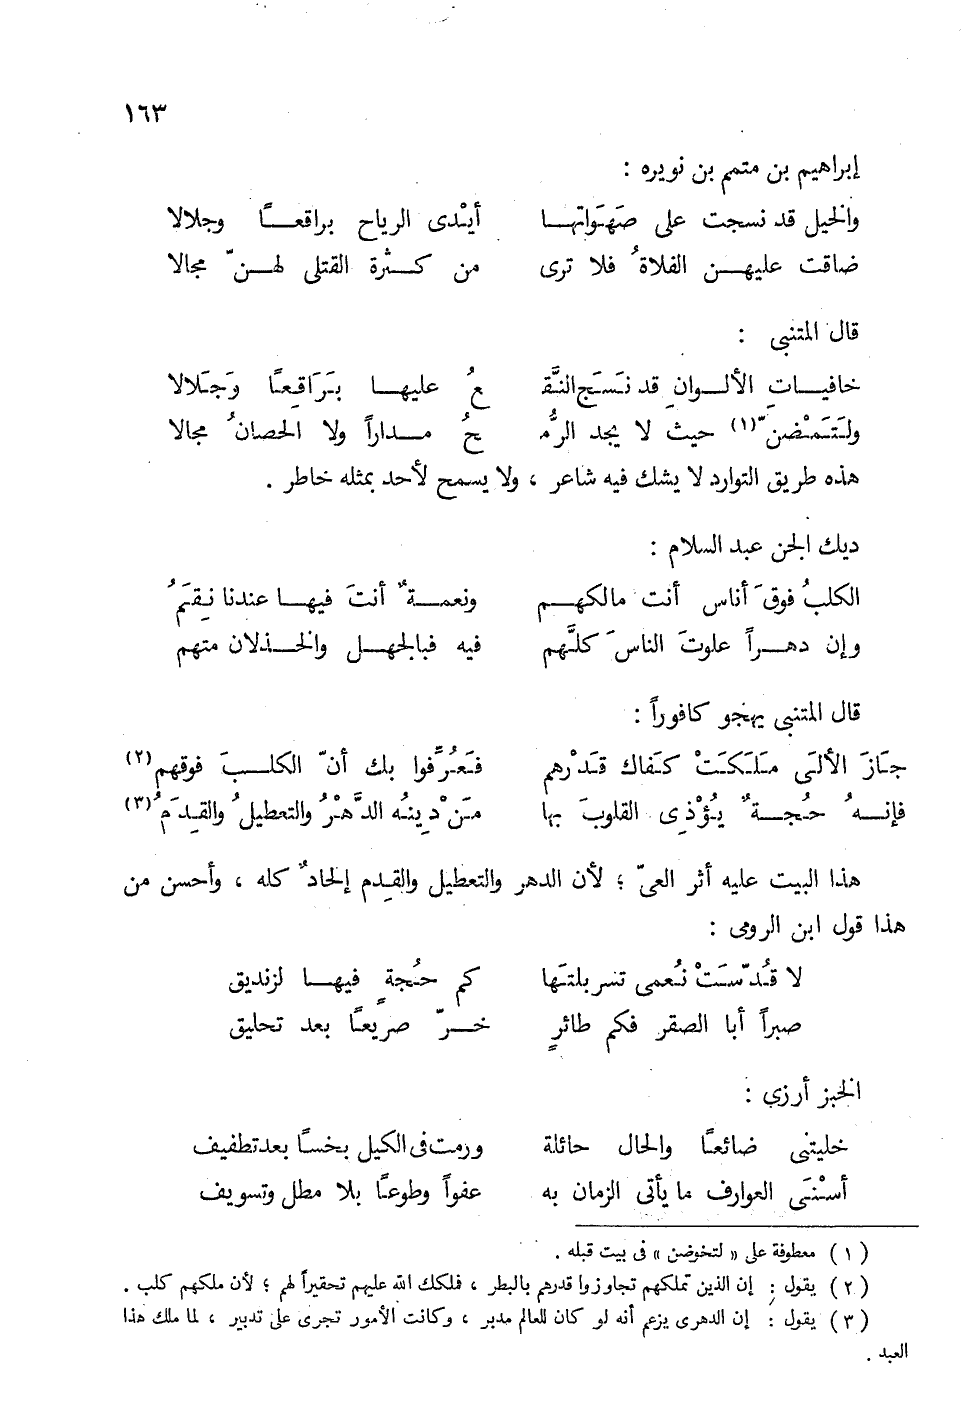 ١٦٣
إبراهيم بن متمم بن نويره :
والخيل قد نسجت على صَهَوَاتهـا أيْدى الرياح براقعــًا وجلالا
ضاقت عليهـن الفلاةُ فلا ترى من كـثْرة القتلى لهـنّ مجالا
قال المتنبى :
خافيـاتِ الألـوانِ قد نَسَج النَّقـ ـعُ عليهـا بَرَاقِعـًا وَجَلالا
ولَتَمْضنّ(١) حيث لا يجد الرُّمـ ـحُ مـداراً ولا الحصانُ مجالا
هذه طريق التوارد لا يشك فيه شاعر ، ولا يسمح لأحد بمثله خاطر .
ديك الجن عبد السلام :
الكلبُ فوقَ أناس أنت مالكهـم ونعمـةٌ أنتَ فيهـا عندنا نِقَمُ
وإن دهـراً علوتَ الناسَ كلَّهم فيه فبالجهـل والخـذلان متهم
قال المتنبى يهجو كافوراً :
جَازَ الألَى مَلَكَتْ كَفاك قَدْرهم فَعُرِّفوا بك أنّ الكلـبَ فوقهم(٢)
فإنـهُ حُجـةٌ يُؤْذى القلوبَ بها مَنْ دِينُه الدَّهْرُ والتعطيلُ والقِدَمُ(٣)
هذا البيت عليه أثر العىّ ؛ لأن الدهر والتعطيل والقِدم إلحادٌ كله ، وأحسن من
هذا قول ابن الرومى :
لا قُدّسَتْ نُعمى تسربلتَها كم حُجةٍ فيهـا لزنديق
صبراً أبا الصقر فكم طائرٍ خـرّ صريعًا بعد تحليق
الخبز أرزي :
خليتنى ضائعًا والحال حائلة ورمت فى الكيل بخسًا بعد تطفيف
أسْنَى العوارف ما يأتى الزمان به عفواً وطوعًا بلا مطل وتسويف
(١) معطوفة على « لتخوضن » فى بيت قبله .
(٢) يقول : إن الذين تملكهم تجاوزوا قدرهم بالبطر ، فملكك الله عليهم تحقيراً لهم ؛ لأن ملكهم كلب .
(٣) يقول : إن الدهرى يزعم أنه لو كان للعالم مدبر ، وكانت الأمور تجرى على تدبير ، لما ملك هذا
العبد .